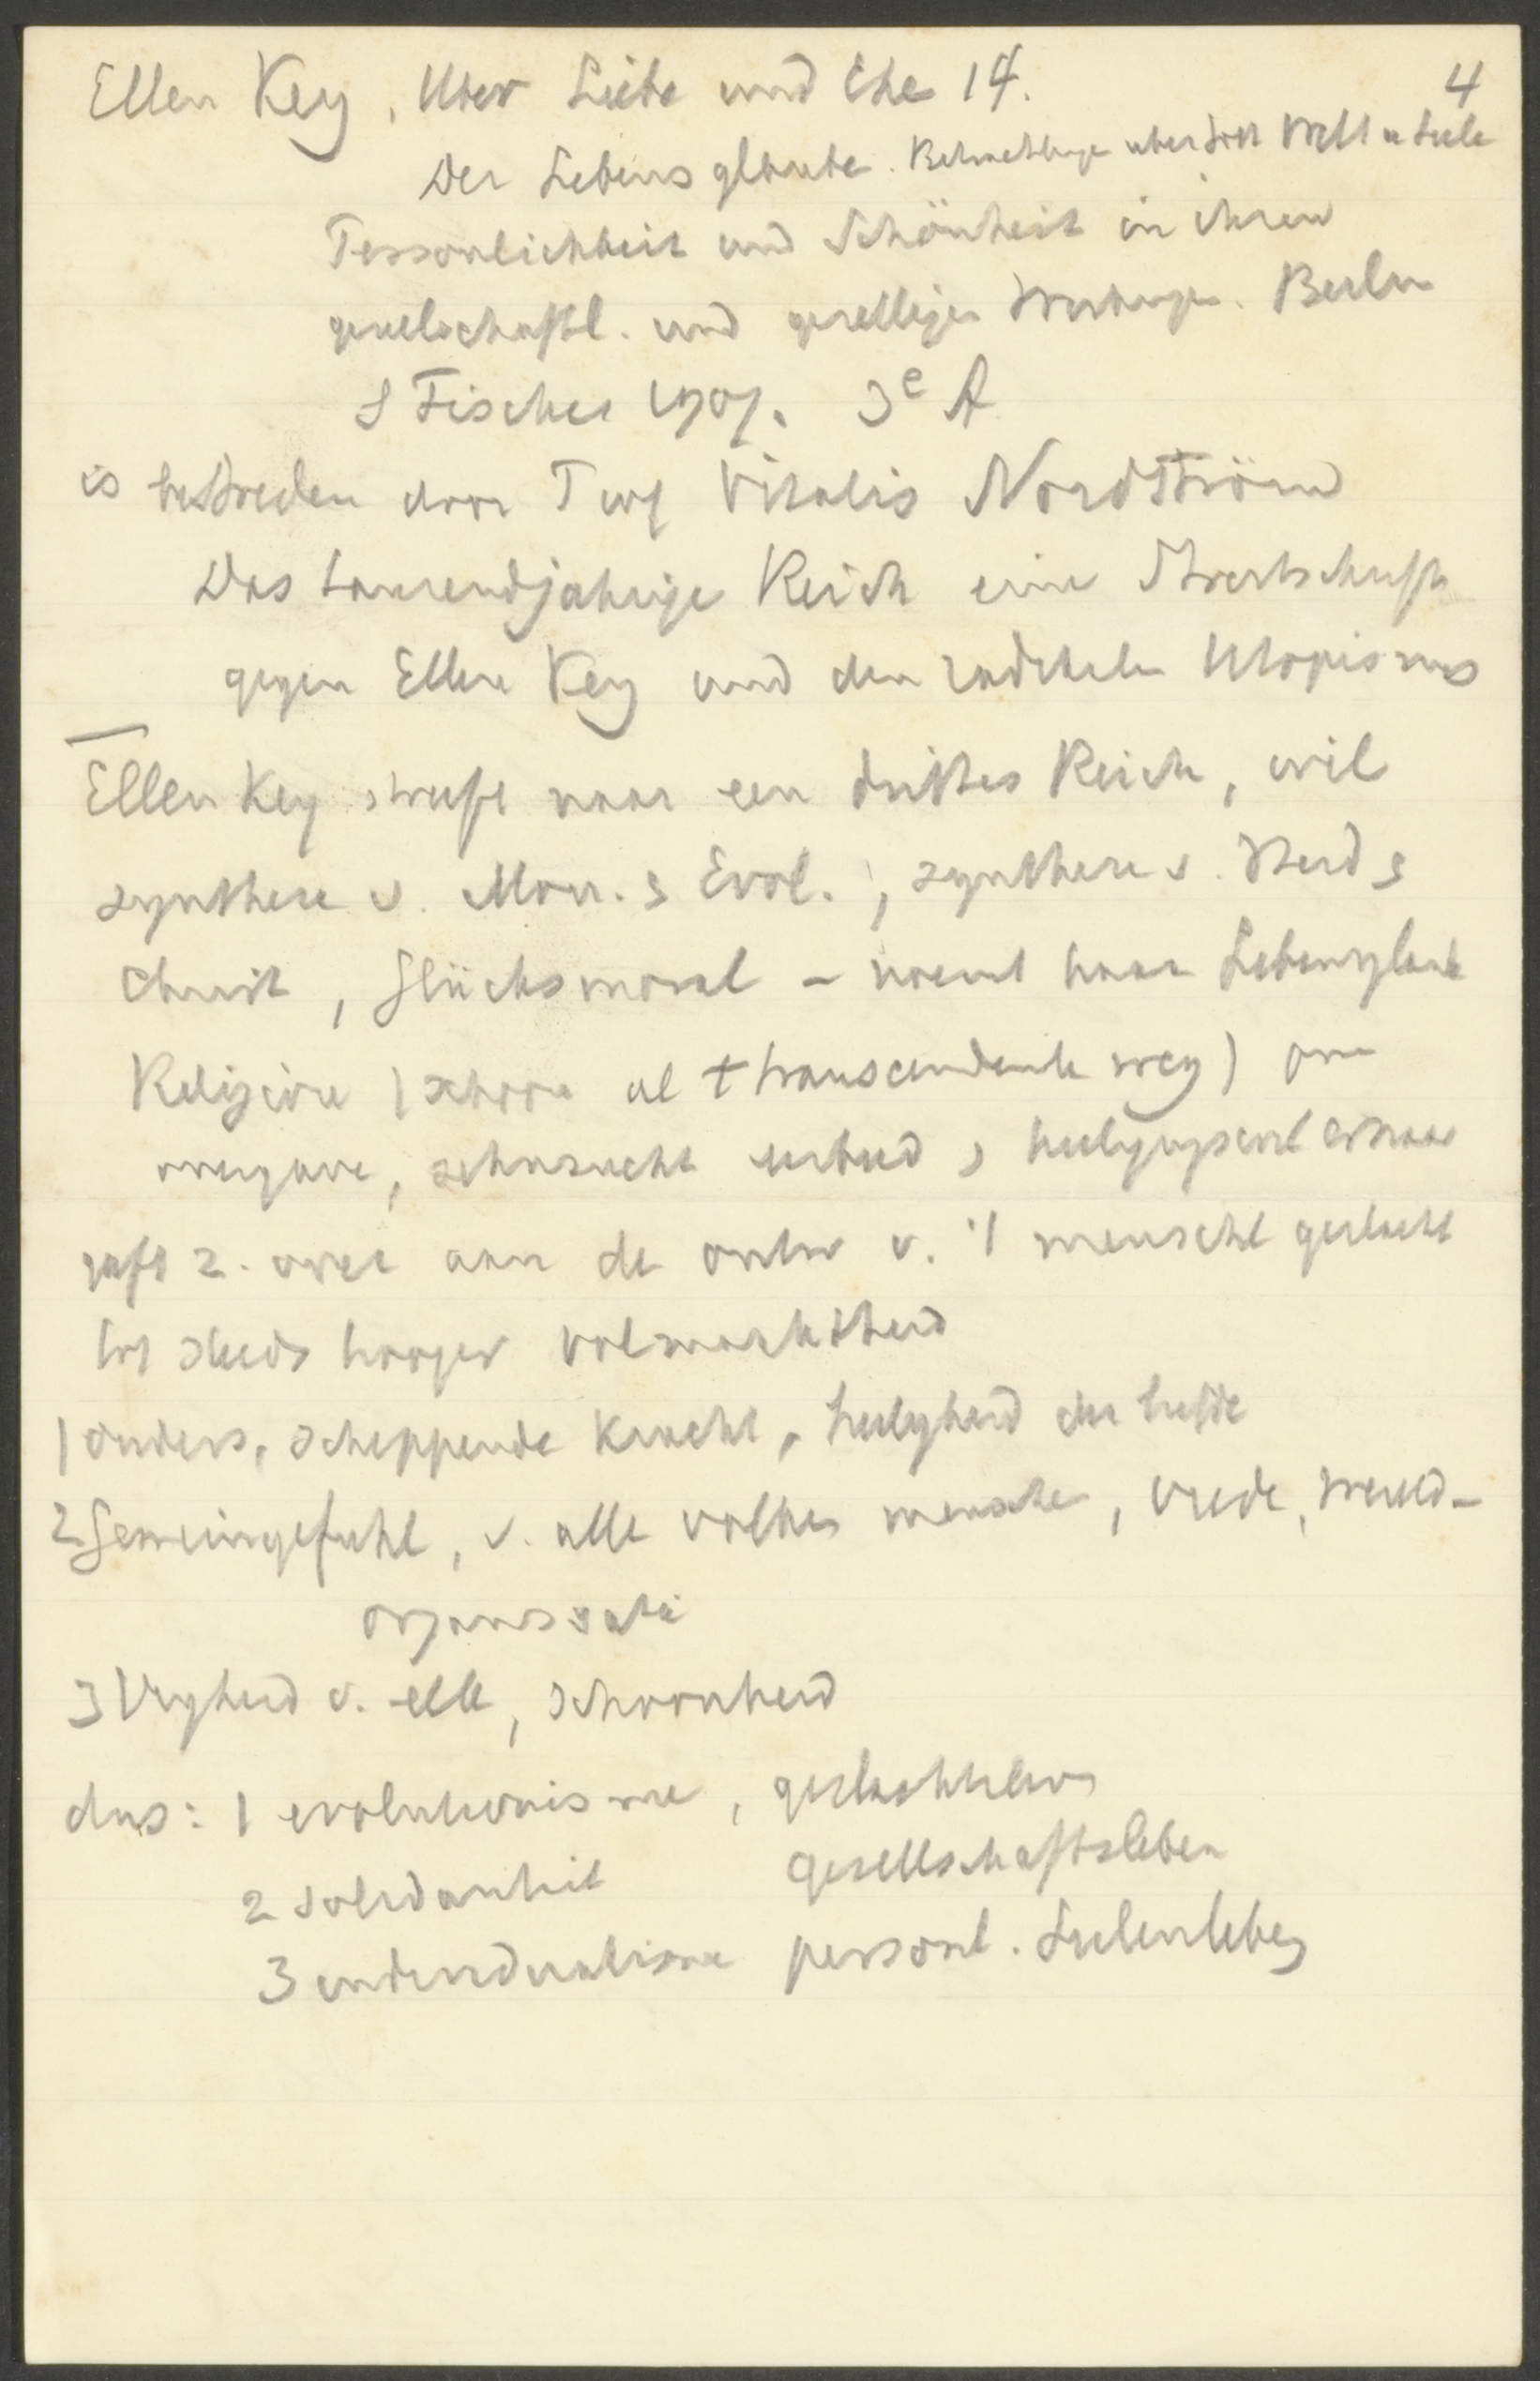 Ellen Key, Uber Liebe und Ehe 14. 4
Der Lebensglaube. Betrachtunge uber Gott Welt u Seele
Personlichkeit und Schönheit in ihren
gesellschaftl. und geselligen Wirkungen. Berlin
S Fischer 1907. 3e A
is bestreden door Prof Vitalis Nordström
Das tausendjahrige Reich eine Streitschrift
gegen Ellen Key und den radikalen Utopismus
Ellen Key streeft naar een drittes Reich, wil
synthese v. Mon. & Evol., synthese v. Heid &
Christ, Glücksmoral – noemt haar Lebensglaube
Religion (schoon al 't transcendente weg) om
overgave, sehnsucht eerbied &
geeft z. over aan de ontw v. 't menschl geslacht
tot steeds hooger volmaaktheid
1 anders, scheppende kracht, heiligheid der liefde
2 Gemeingefuhl, v. alle volken menschen, vrede, wereld-
organisatie
3 Vrijheid v. elk, schoonheid
dus: 1 evolutionisme, geslachtsleven
2 solidariteit gesellschaftsleben
3 individualisme personl. Seelenleben